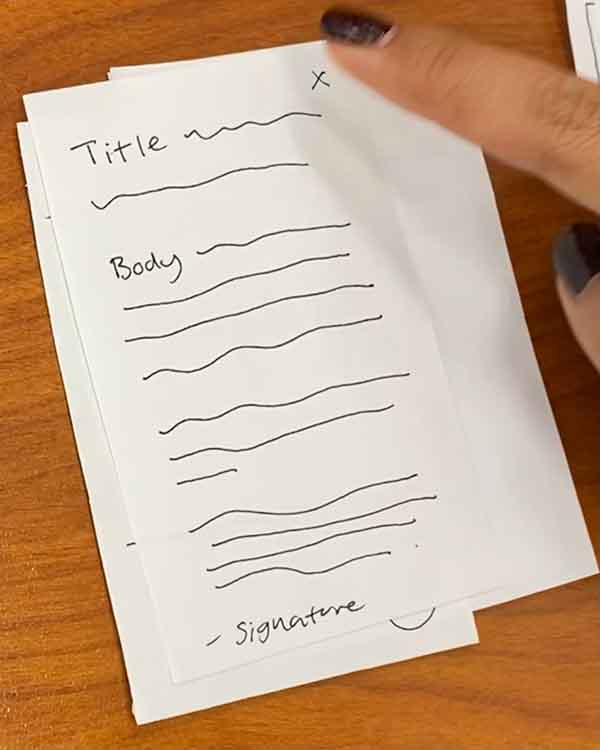 X
Title
Body
- Signature